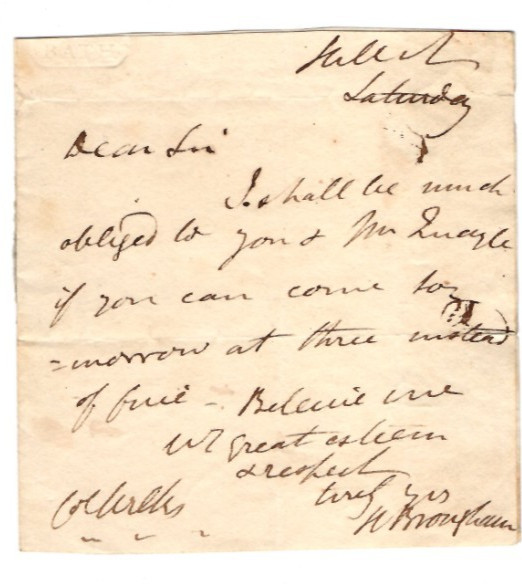 Hill St
Saturday
Dear Sir
I shall be much
obliged to you & Mr Quayle
if you can come to
=morrow at three instead
of five – Believe me
wt great esteem
& respect
truly yrs
H Brougham